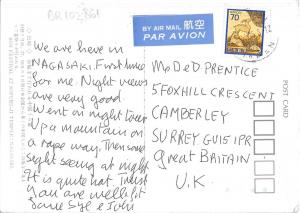 BR102861
BY AIR MAIL 航空
PAR AVION
70
We are here in
NAGASAKI. First time
for me. Night views
are very good
Went on night tour
Up a mountain on
a rope way. Then some
sight seeing at night
It is quite hot. Trust
you are well. Pat
Dave Syl e John
Mr D e D. PRENTICE
5 FOXHILL CRESCENT
CAMBERLEY
SURREY GU15 1PR
Great BRITAIN
U.K.
POST CARD